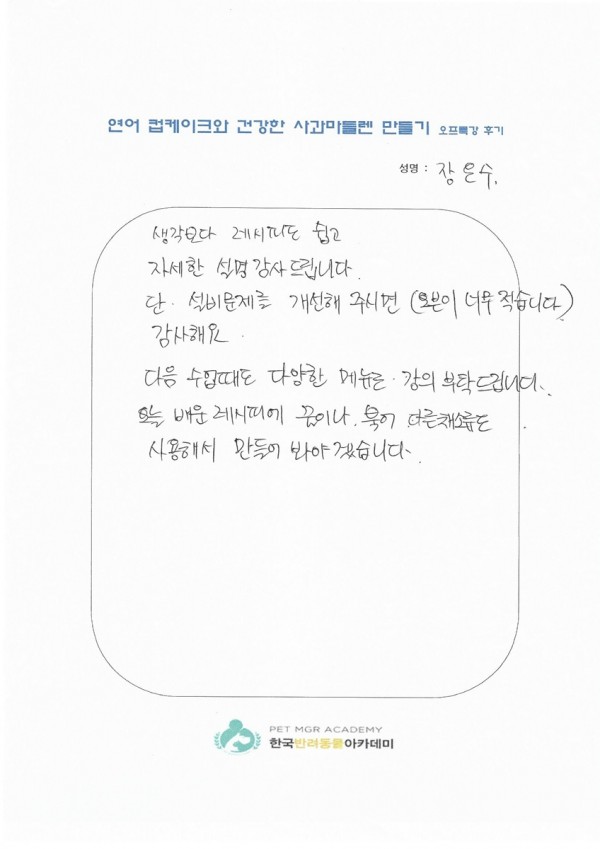 연어 컵케이크와 건강한 사과마들렌 만들기 오프특강 후기
성명 : 장은수.
생각보다 레시피도 쉽고
자세한 설명 감사드립니다.
단. 설비문제를 개선해 주시면 (오븐이 너무 적습니다.)
감사해요.
다음 수업때도 다양한 메뉴로. 강의 부탁드립니다.
오늘 배운 레시피에 꿀이나. 북어 다른채소류도.
사용해서 만들어 봐야겠습니다.
PET MGR ACADEMY
한국반려동물아카데미